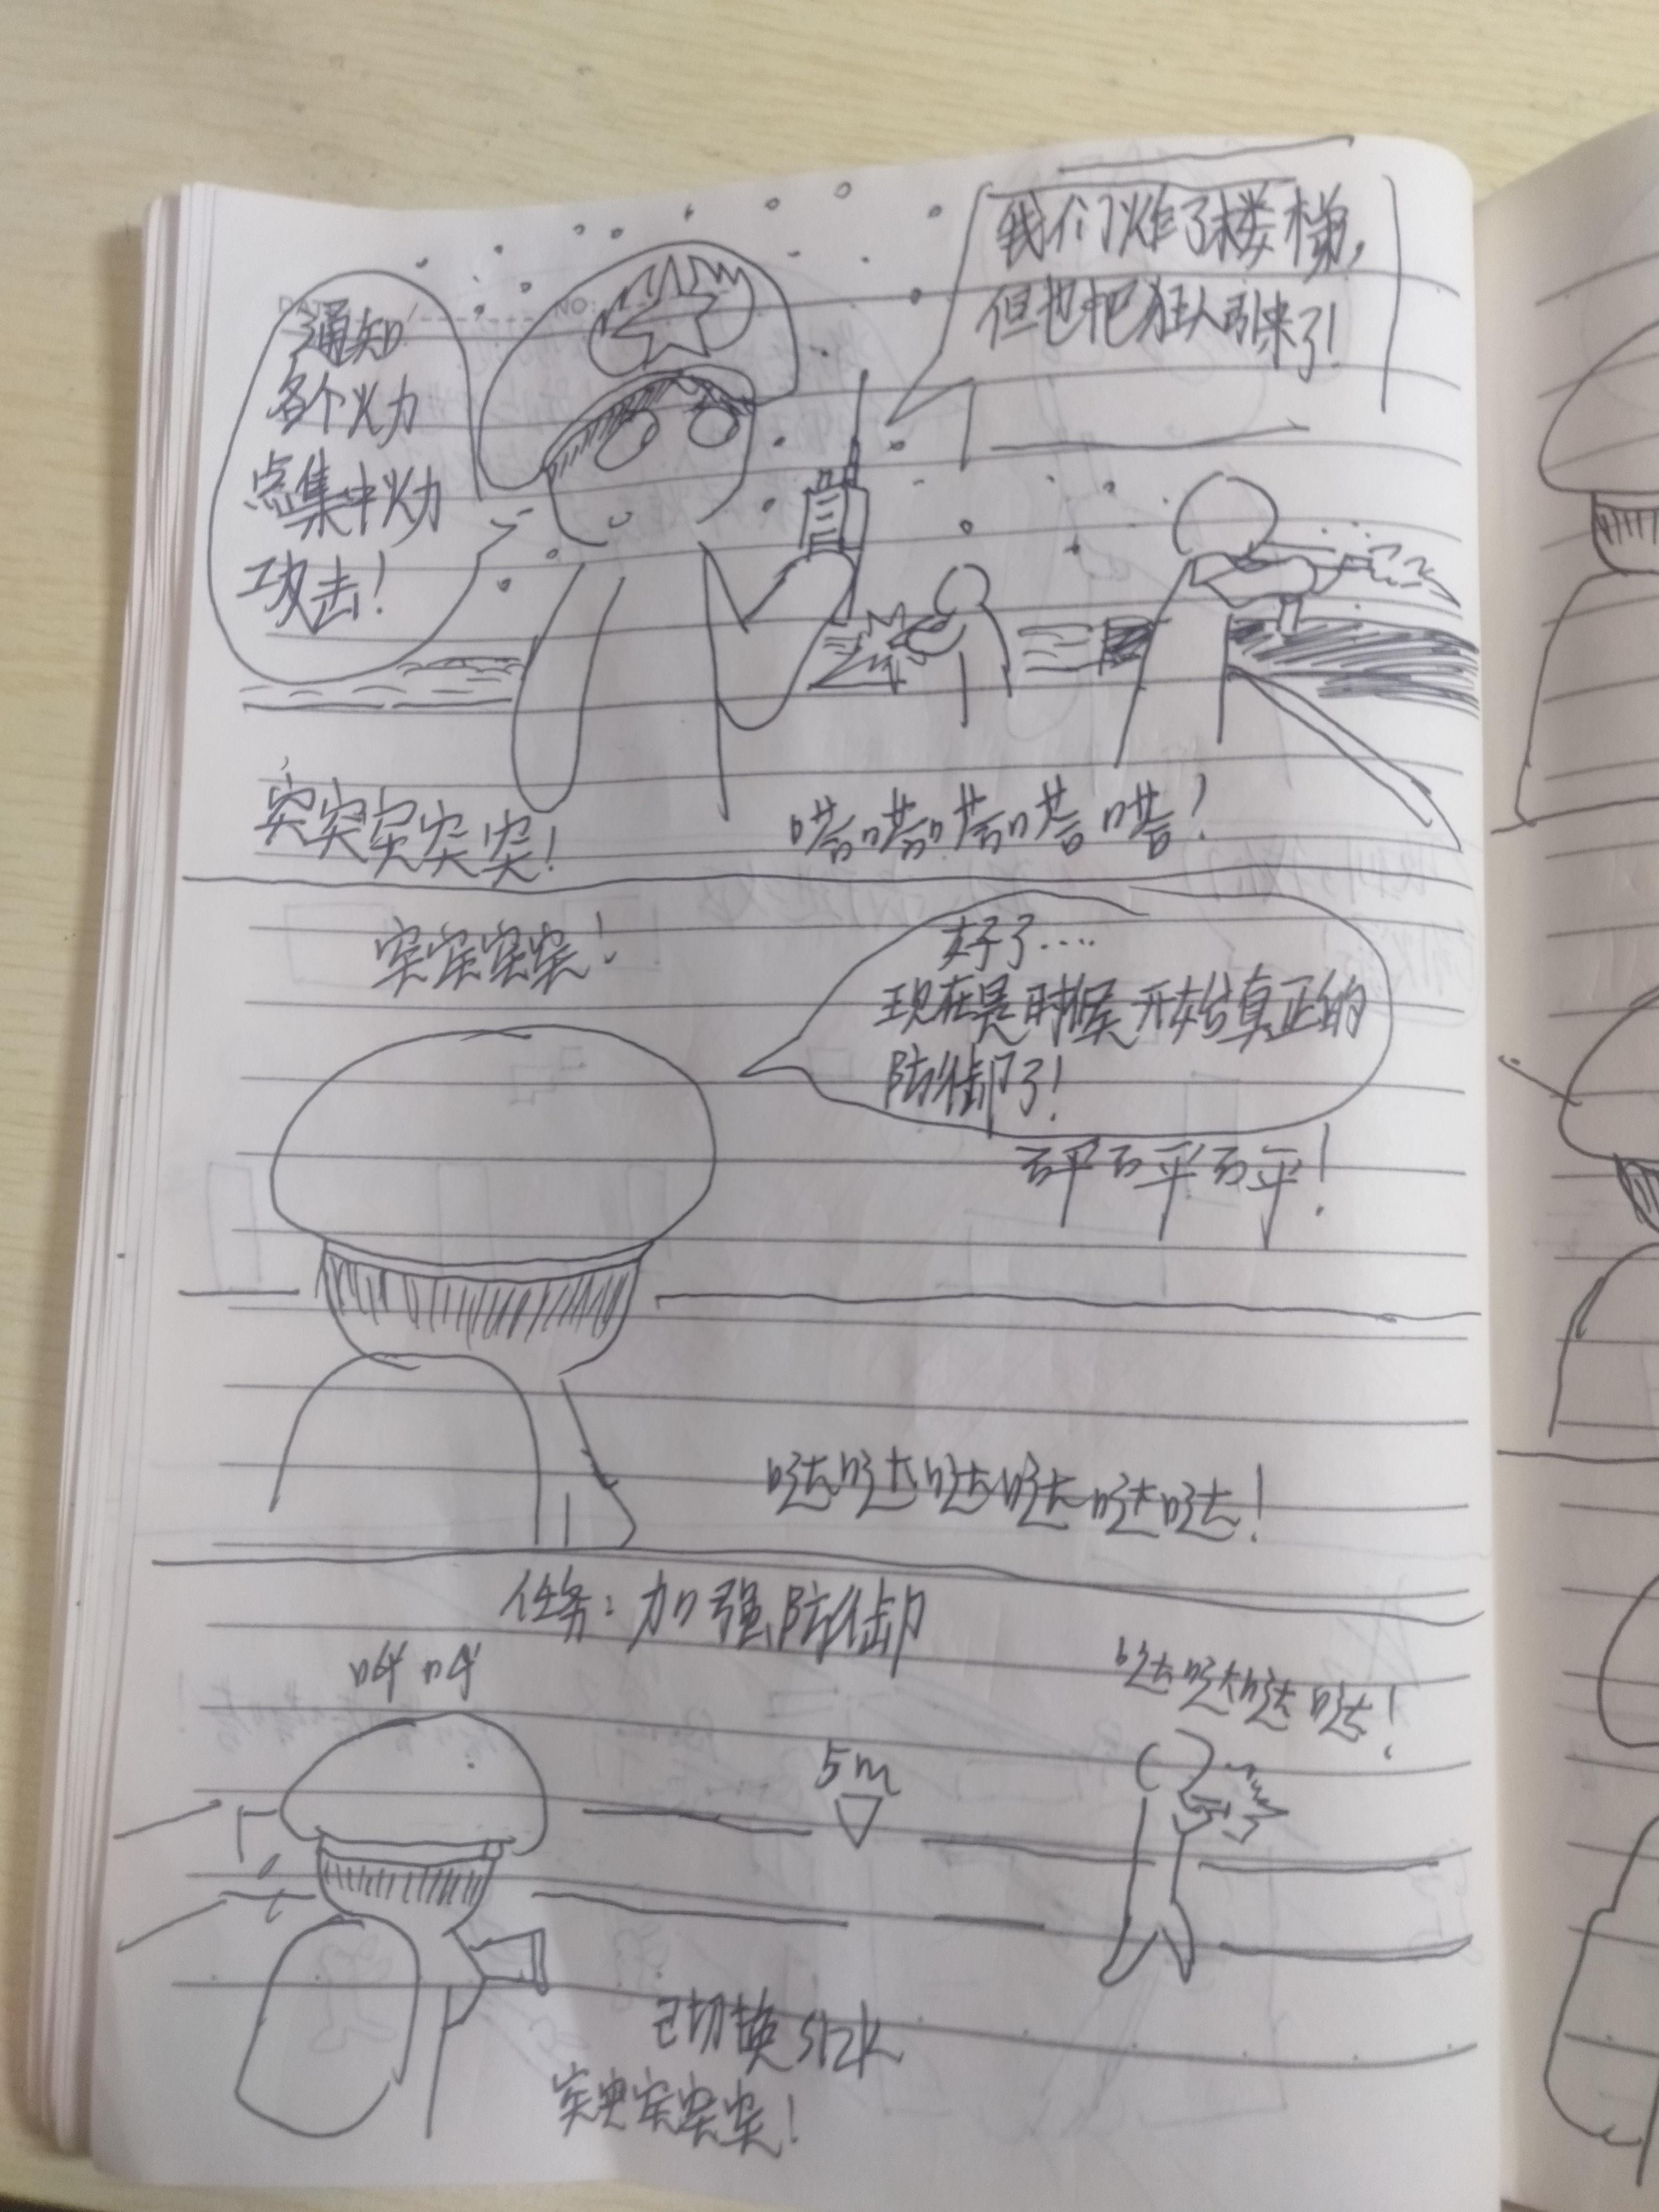 通知
各个火力
点集中火力
攻击!
我们炸了楼梯,
但也把狂人引来了!
NO:
突突突突突!
嗒嗒嗒嗒嗒!
突突突突!
好了....
现在是时候开始真正的
防御了!
砰砰砰!
哒哒哒哒哒哒!
任务:加强防御
咔咔
哒哒哒哒!
5m
已切换S12K
突突突突突!